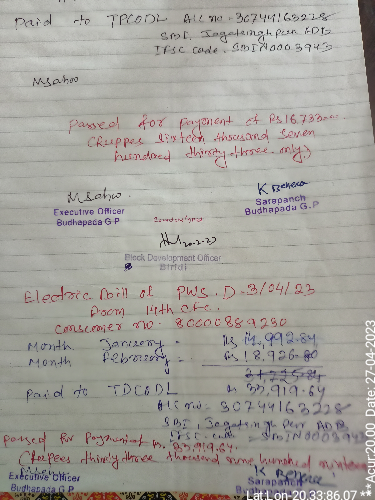 Paid to TPCODL A/C no - 30744163228
SBI, Jagatsinghpur ADB
IFSC code - SBIN0003943
MSahoo
Passed for payment of Rs 16,733
(Ruppes Sixteen thousand Seven
hundred thirty-three only)
MSahoo.
Executive Officer
Budhapada G.P
K Behera
Sarapanch
Budhapada G.P
20-2-23
Block Development Officer
Biridi
Electric Bill of PWS. D-3/04/23
From 14th CFC.
Consumer no. 80000889230
Month January - Rs 14,992.84
Month February - Rs 18,926.80
Paid to TDCODL Rs 33,919.64
A/C no - 30744163228
SBI, Jagatsinghpur ADB
IFSC code - SBIN0003943
passed for Payment Rs. 33,919.64
(Rupees thirty three thousand nine hundred nineteen
Executive Officer
Budhapada G.P
K Behera
Sarapanch
Budhapada G.P
Lat Lon-20.33:86.07
**Acur:20.00, Date:27-04-2023